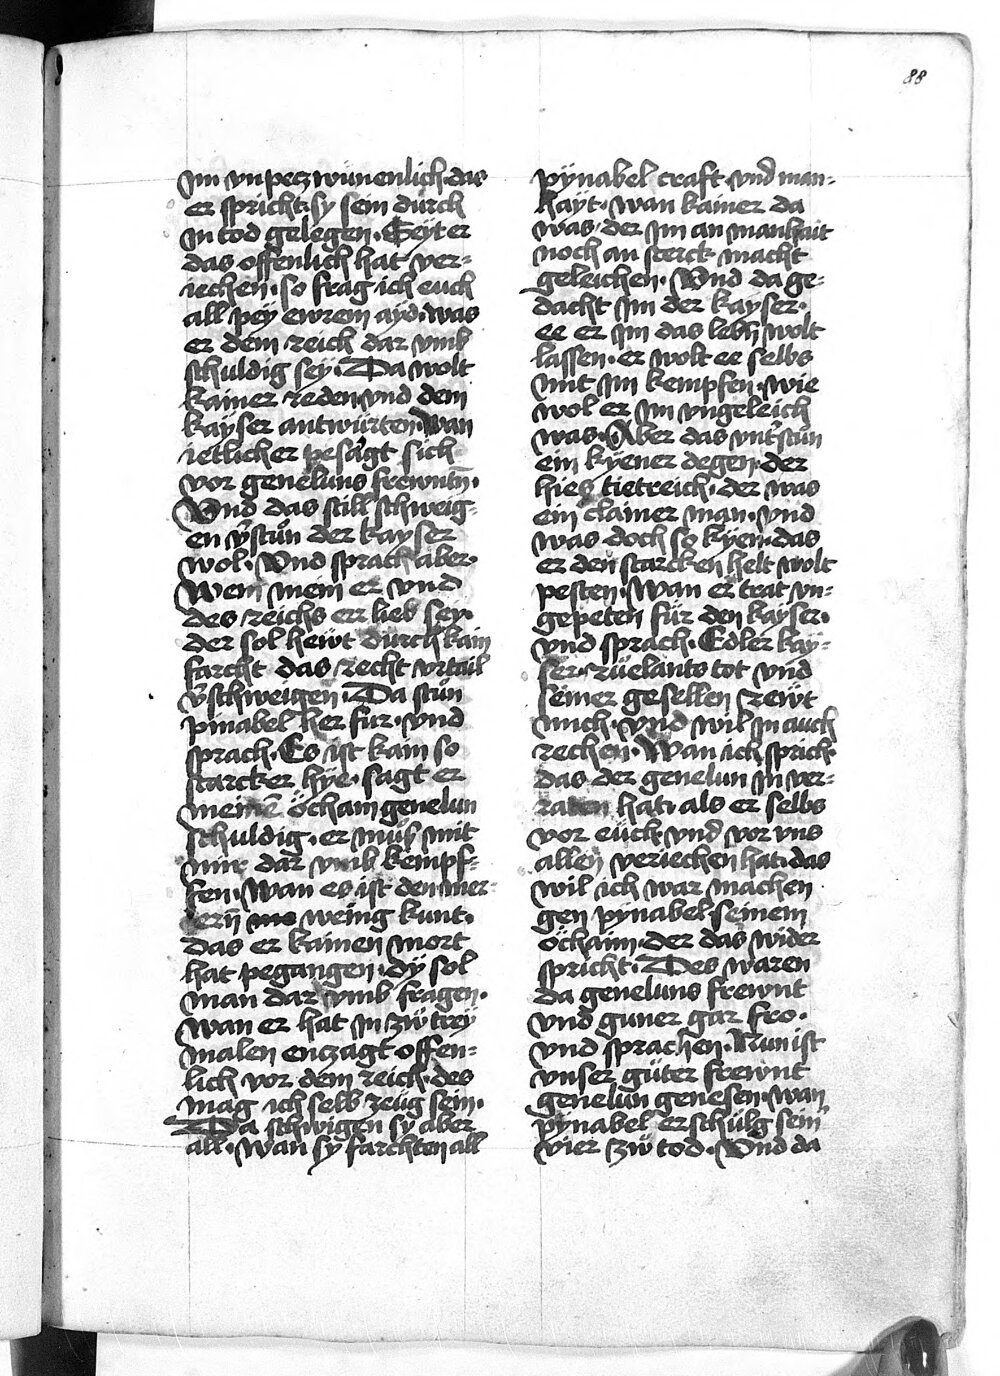 88
im vnpetzwünenlich · das
er spricht · sy sein dürch
in tod gelegen · Seyt er
das offenlich hat ver-
iechen · so frag ich euch
all pey ewrem ayd · was
er dem reich dar vmb
schuldig sey · Da wolt
kainer reden · vnd dem
kayser antwürten · wan
ietlicher pesagt sich
vor geneluns frewntn̄ ·
Vnd das still schweig-
en v̄stůn der kayser
wol · Vnd sprach aber ·
Wem mein er vnd
des reichs err lieb sey ·
der sol hewt dürch kain
farcht das recht vrtail
v̄schweigen · Da stůn
pinabel her für · vnd
sprach · Es ist kain so
starcker hye · sagt er
meinē öcham genelun
schuldig · er müs mit
mir dar vmb kempf-
fen · Wan es ist den mer-
ern̄ weing kunt ·
das er kainen mort
hat pegangen · dy sol
man dar vmb fragen ·
wan er hat in zẅ trey
malen enzagt offen-
lich vor dem reich · des
mag ich selb zeüg sein ·
Da schwigen sy aber
all · wan sy farchten all
pynabel craft · vnd man-
hayt · wan kainer da
was · der im an manhait
noch an sterck macht
geleichen · Vnd da ge-
dacht im der kayser ·
ee er im das lebn̄ wolt
lassen · er wolt ee selbs
mit im kempfen · wie
wol er im vngeleich
was · Aber das vnt̄stůn
ein kyener degen · der
hies tietreich · der was
ein clainer man · vnd
was doch so kyen · das
er den starcken helt wolt
pesten · Wan er trat vn-
gepeten für den kayser ·
vnd sprach · Edler kay-
ser · rüelants tot vnd
seiner gesellen rewt
mich · vnd wil in auch
rechen · Wan ich sprich
das der genelun in ver-
raten hat · als er selbs
vor eüch vnd vor vns
allen veriechen hat · das
wil ich war machen
gen pynabel seinem
öchaim · der das wider
spricht · Des waren
da geneluns frewnt
vnd guner gar fro ·
vnd sprachen · Nun ist
vnser güter frewnt
genelun genesen · wan
pynabel erschülg sein
vier zẅ tod · Vnd da